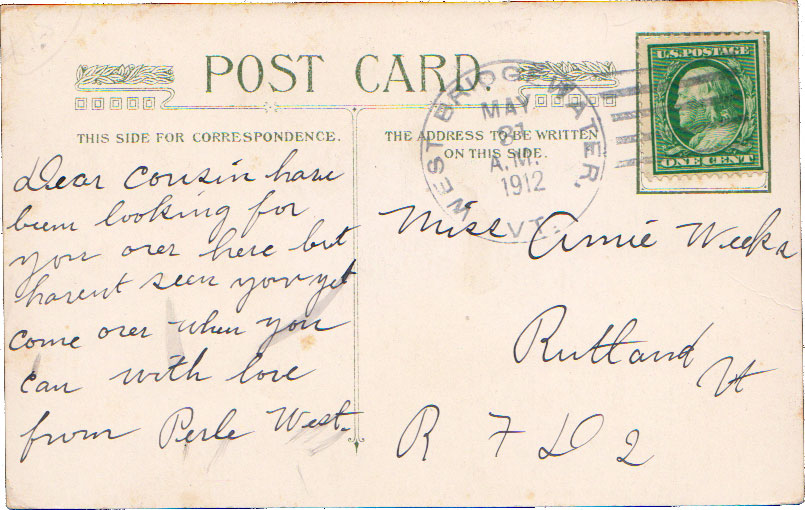 POST CARD.
THIS SIDE FOR CORRESPONDENCE.
THE ADDRESS TO BE WRITTEN
ON THIS SIDE.
WEST BRIDGEWATER, VT.
MAY
A.M.
1912
U.S. POSTAGE
ONE CENT
Dear Cousin have
been looking for
you over here but
havent seen you yet
come over when you
can with love
from Perle West.
Miss Annie Weeks
Rutland
Vt
R F D 2